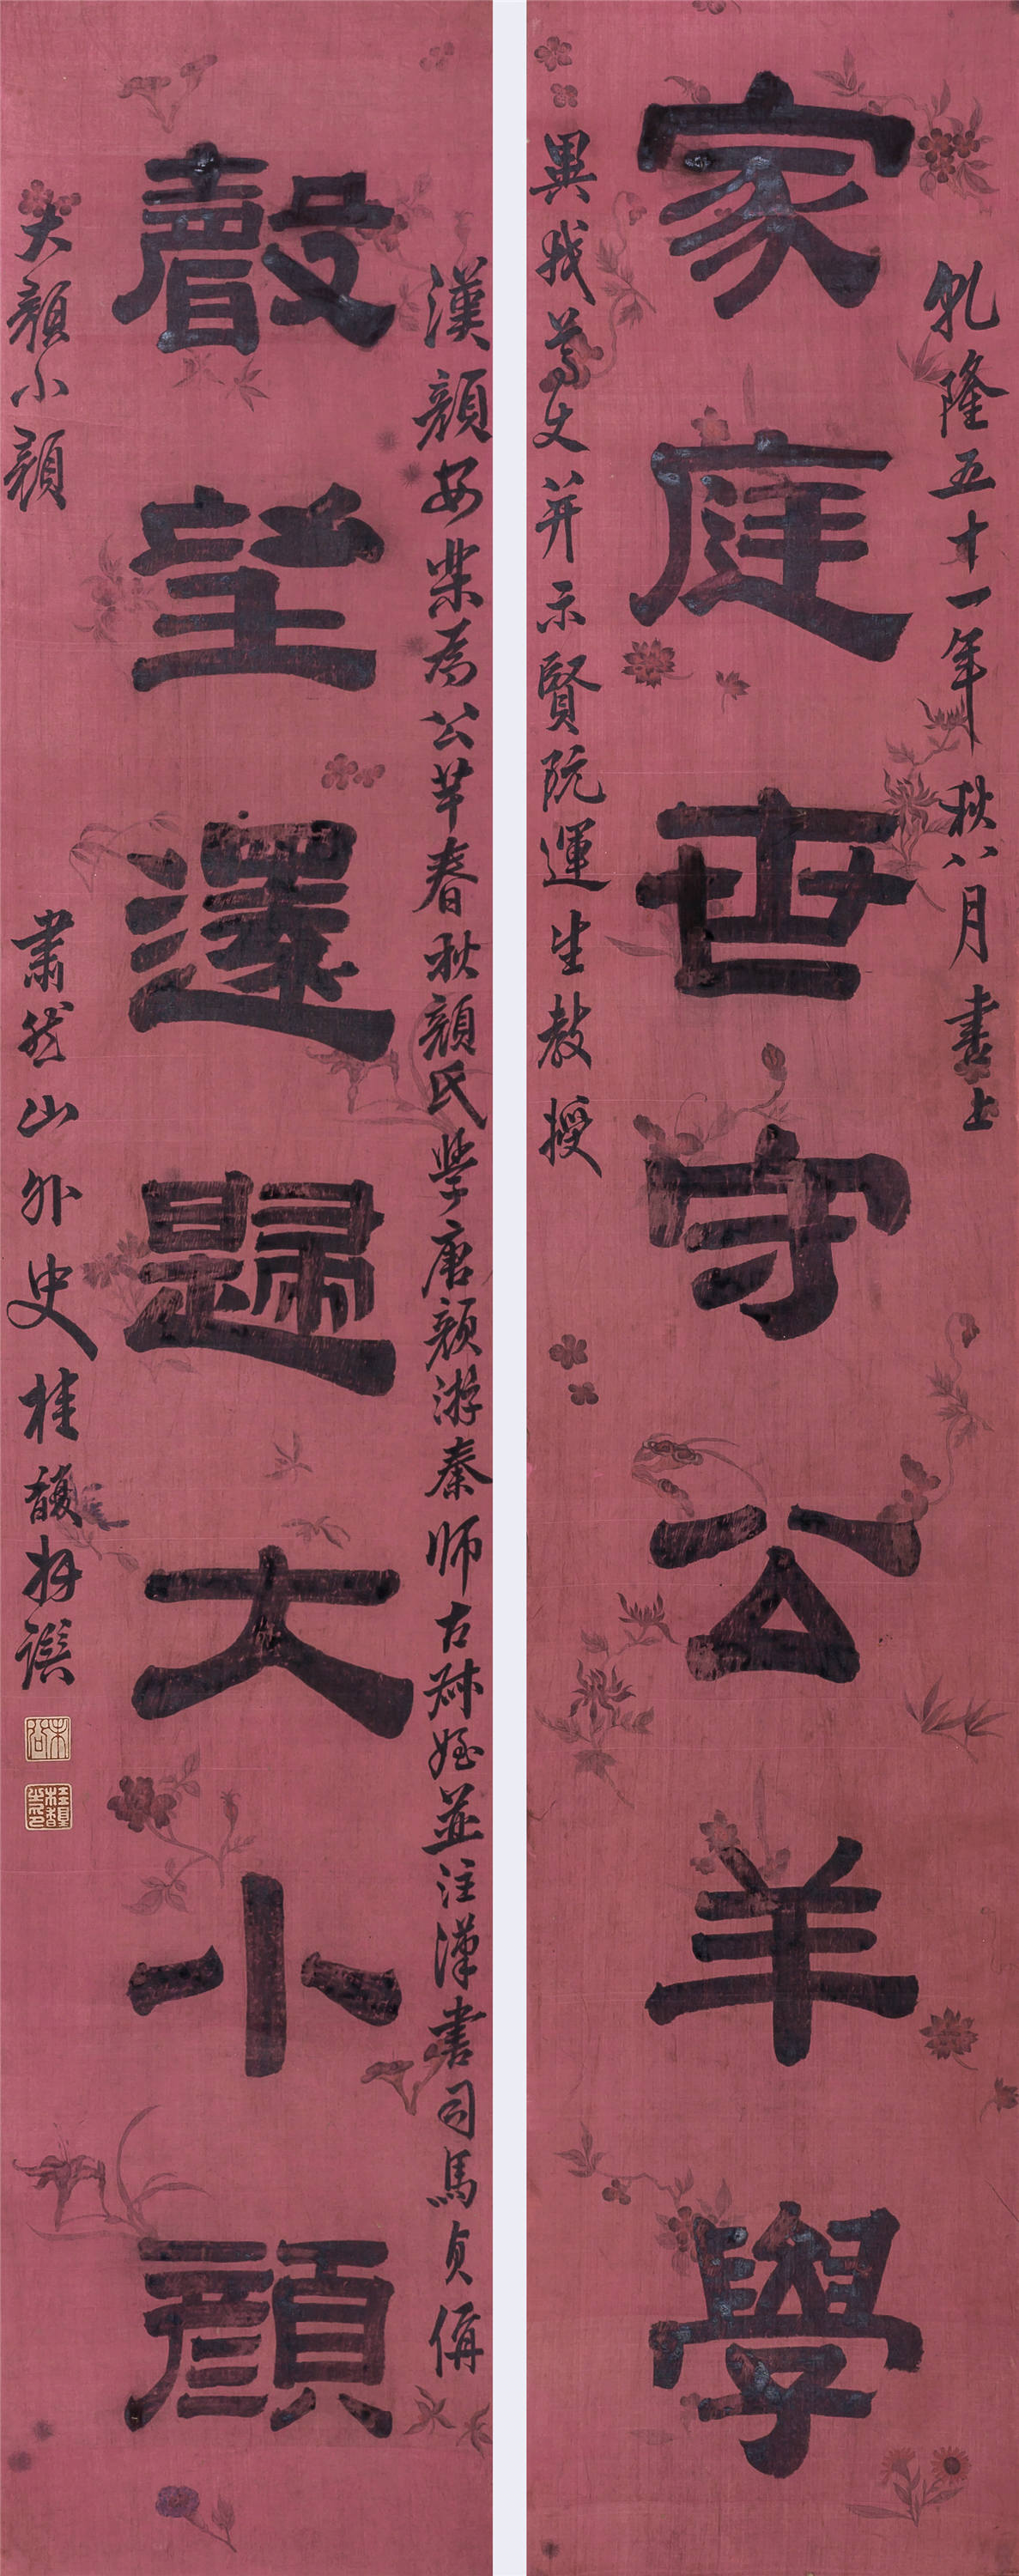 乹隆五十一年秋八月書上
家庭世守公羊學
異我尊丈并示賢阮運生教授
漢顏安樂為公羊春秋顏氏學唐顏游秦師古叔姪並注漢書司馬貞偁
聲望還歸大小顏
大顏小顏
肅然山外史桂馥拜譔
未谷
桂馥之印